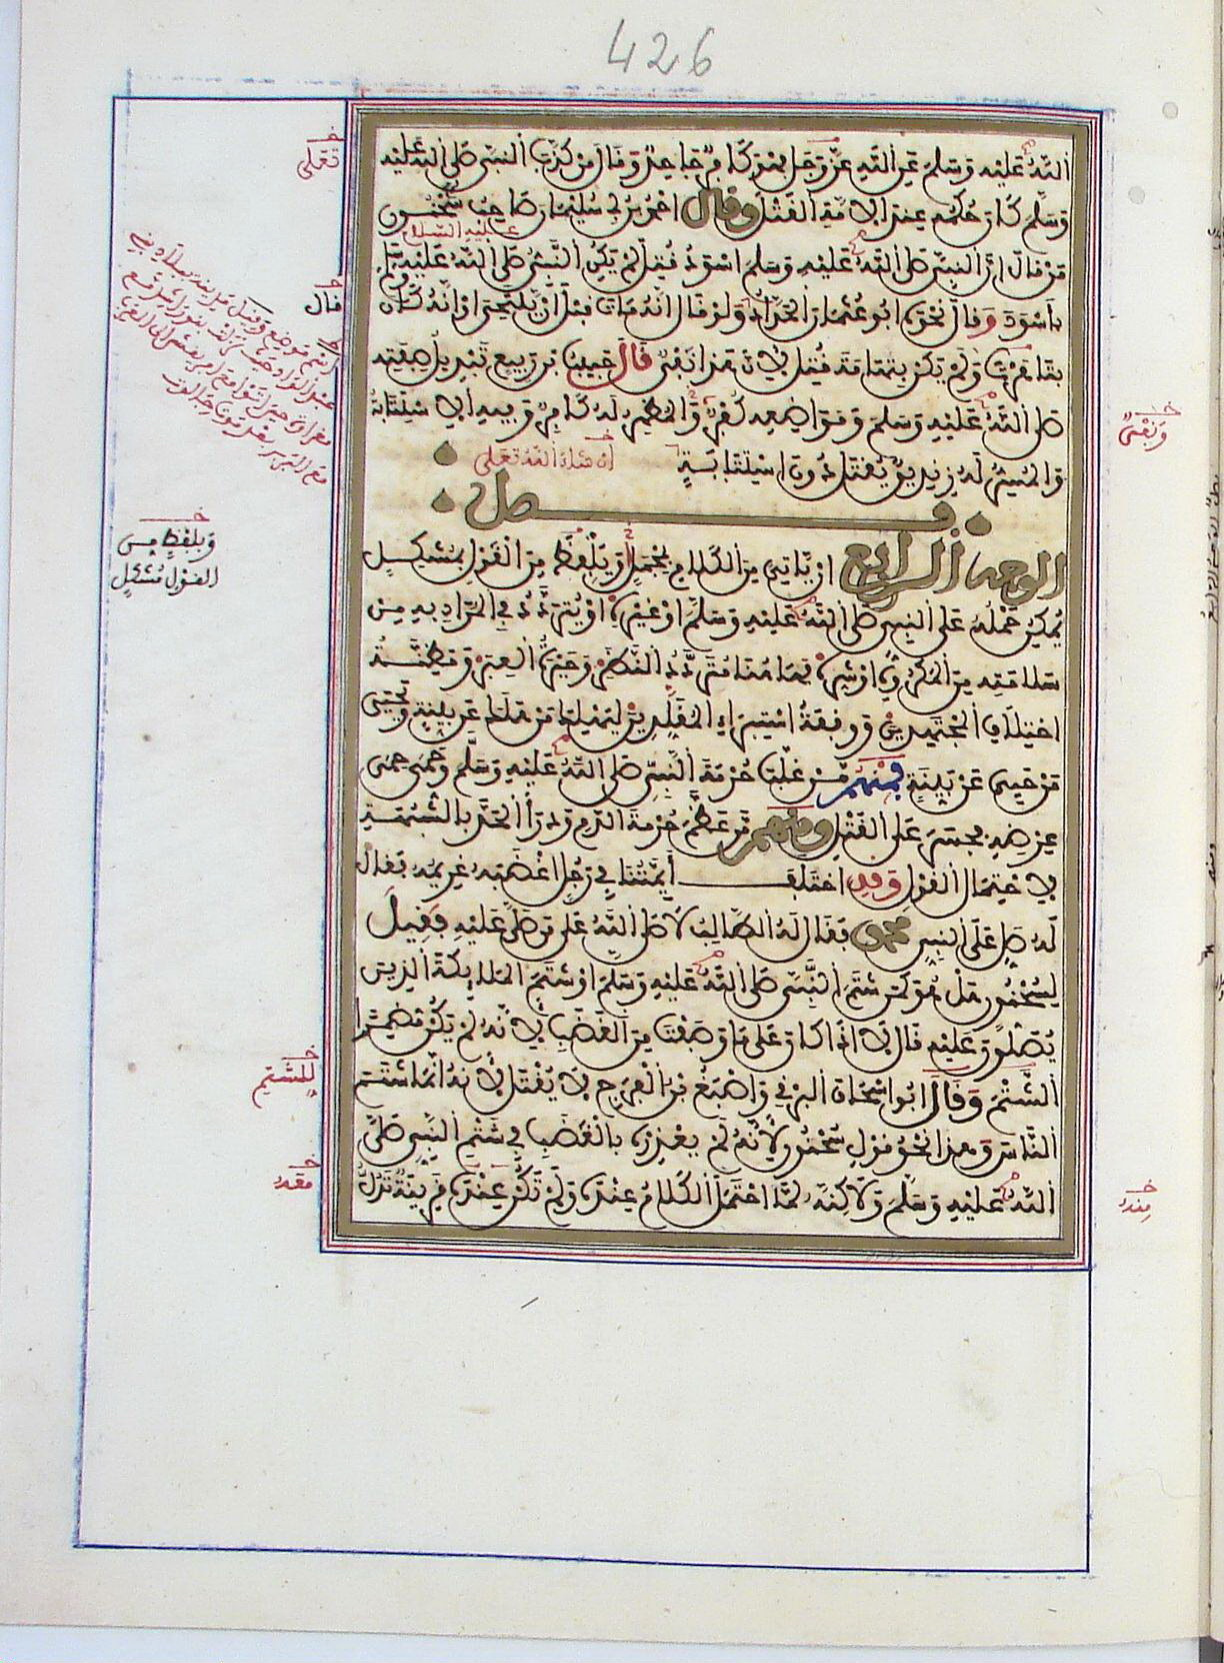 426
الله عليه وسلم عن الله عز وجل فهو كافر جاحد وقال من كذب النبي صلى الله عليه
وسلم كان حكمه عند الامة القتل وقال احمد بن ابي سليمان صاحب سحنون
عليه السلام
من قال ان النبي صلى الله عليه وسلم اسود قتل لم يكن النبي صلى الله عليه وسلم
باسود وقال نحوه ابو عثمان الحداد ولو قال انه مات قبل ان يلتحي او انه كان
بتاهرت ولم يكن بتهامة قتل لان هذا نفي قال حبيب بن ربيع تبديل صفته
صلى الله عليه وسلم ومواضعه كفر والمظهر له كافر وفيه الاستتابة
والمسر له زنديق يقتل دون استتابة
ان شاء الله تعلى
فصل
الوجه الرابع ان ياتي من الكلام بمجمل ويلفظ من القول بمشكل
يمكن حمله على النبي صلى الله عليه وسلم او غيره او يتردد في المراد به من
سلامته من المكروه او شره فهاهنا متردد النظر وحيرة العبر ومظنة
اختلاف المجتهدين ووقفة استبراء المقلدين ليهلك من هلك عن بينة ويحيى
من حيي عن بينة فمنهم من غلب حرمة النبي صلى الله عليه وسلم وحمى حمى
عرضه فجسر على القتل ومنهم من عظم حرمة الدم ودرأ الحد بالشبهة
لاحتمال القول وقد اختلف أيمتنا في رجل اغضبه غريمه فقال
له صل على النبي محمد فقال له الطالب لا صلى الله على من صلى عليه فقيل
لسحنون هل هو كمن شتم النبي صلى الله عليه وسلم او شتم الملايكة الذين
يصلون عليه قال لا اذا كان على ما وصفت من الغضب لانه لم يكن مضمرا
الشتم وقال ابو اسحاق البرقي واصبغ بن الفرج لا يقتل لانه انما شتم
الناس وهذا نحو قول سحنون لأنه لم يعذره بالغضب في شتم النبي صلى
الله عليه وسلم ولاكنه لما احتمل الكلام عنده ولم تكن عنده قرينة تدل
تعلى
قال
وبلفظ من
القول مشكل
للشتم
معه
ونفي
منه